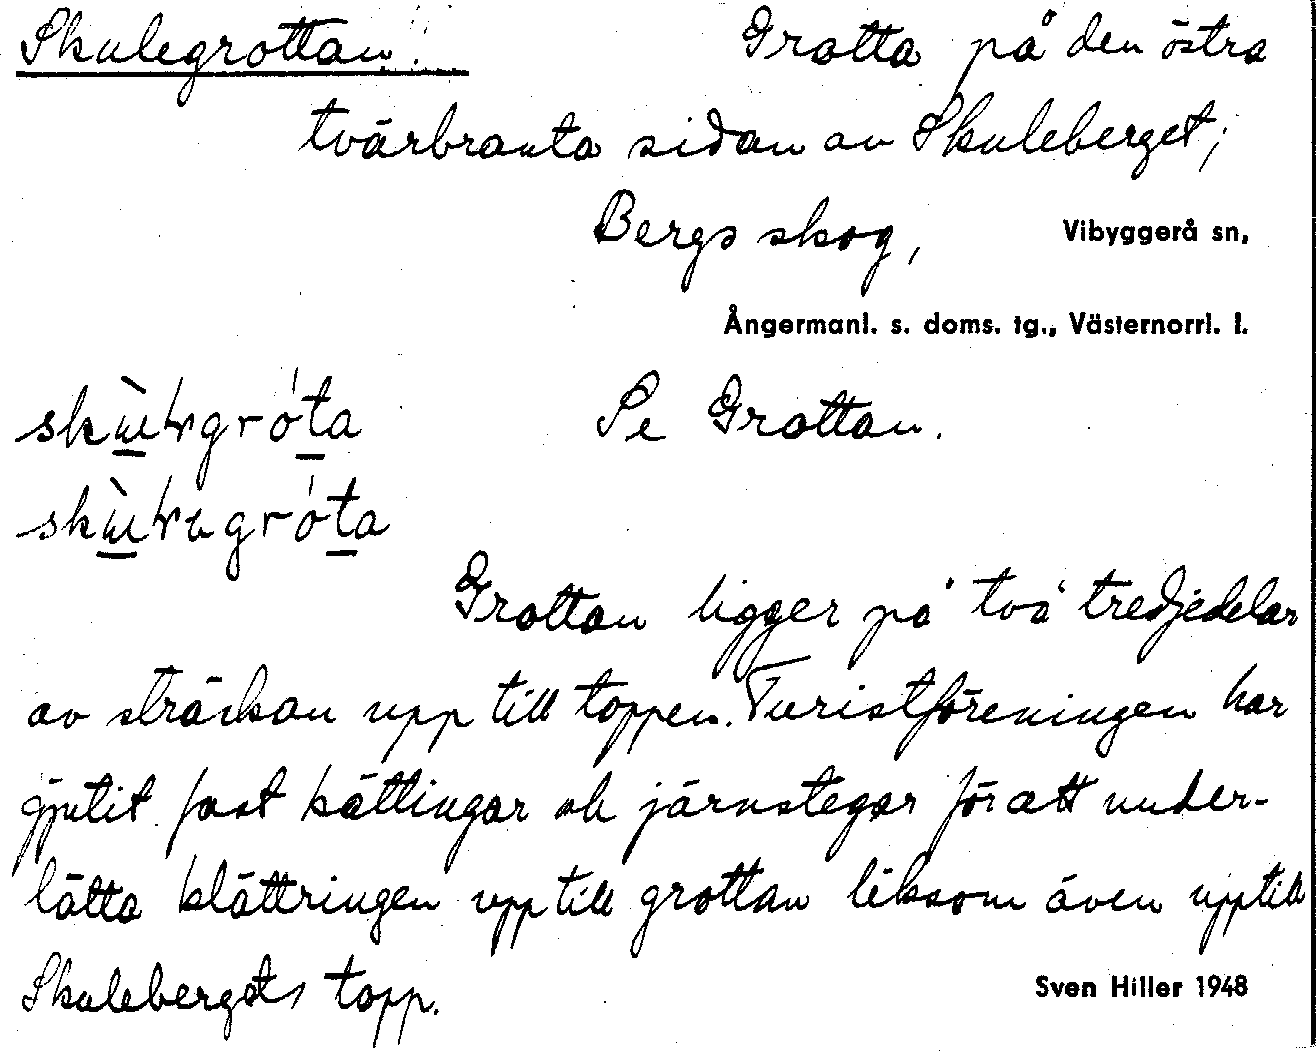 Skulegrottan. Grotta på den östra
tvärbranta sidan av Skuleberget;
Bergs skog, Vibyggerå sn,
Ångermanl. s. doms. tg., Västernorrl. l.
Se Grottan.
Grottan ligger på två tredjedelar
av sträckan upp till toppen. Turistföreningen har
gjutit fast kättingar och järnstegar för att under-
lätta klättringen upp till grottan liksom även upp till
Skulebergets topp. Sven Hiller 1948